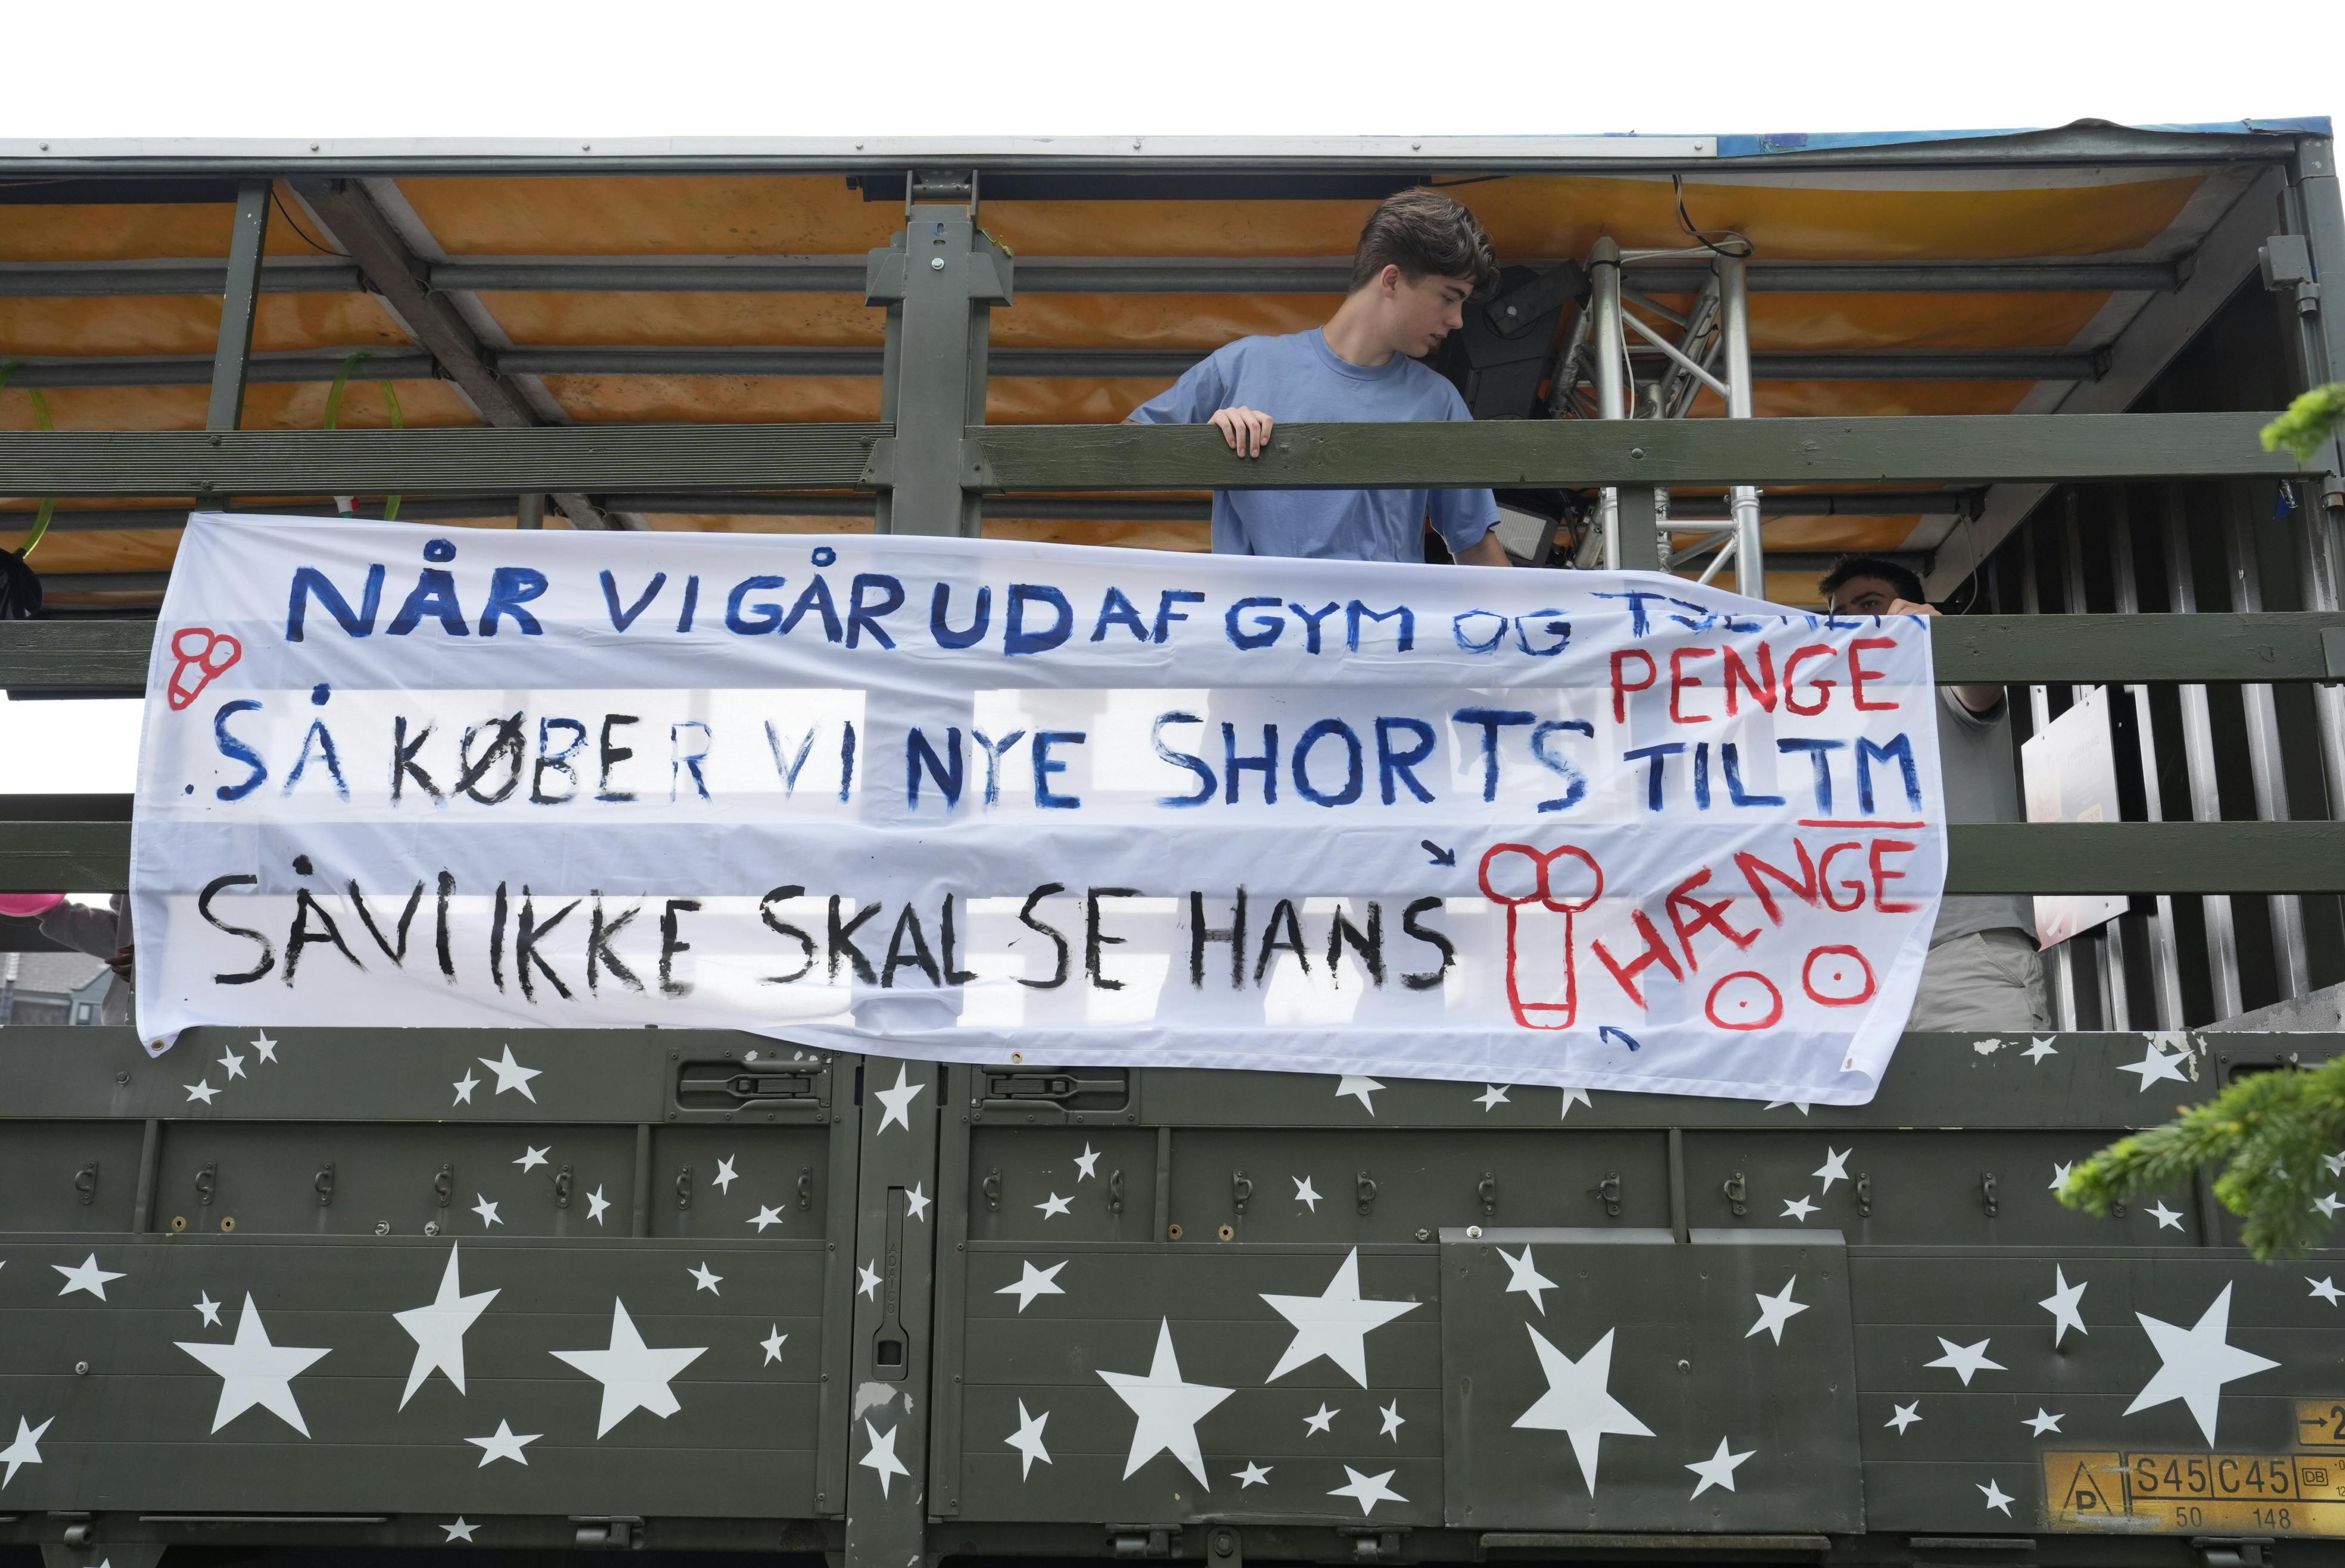 NÅR VI GÅR UD AF GYM OG
PENGE
SÅ KØBER VI NYE SHORTS TIL TM
SÅ VI IKKE SKAL SE HANS
HÆNGE
ADAICO
2
S45 C45 DB
P 50 148